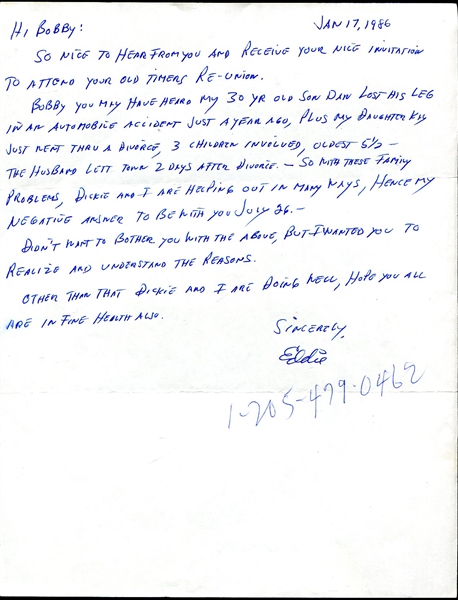 JAN 17, 1986
HI BOBBY:
SO NICE TO HEAR FROM YOU AND RECEIVE YOUR NICE INVITATION
TO ATTEND YOUR OLD TIMERS RE-UNION.
BOBBY YOU MAY HAVE HEARD MY 30 YR OLD SON DAN LOST HIS LEG
IN AN AUTOMOBILE ACCIDENT JUST A YEAR AGO, PLUS MY DAUGHTER KIM
JUST WENT THRU A DIVORCE, 3 CHILDREN INVOLVED, OLDEST 5 1/2 -
THE HUSBAND LEFT TOWN 2 DAYS AFTER DIVORCE. - SO WITH THESE FAMILY
PROBLEMS, DICKIE AND I ARE HELPING OUT IN MANY WAYS, HENCE MY
NEGATIVE ANSWER TO BE WITH YOU JULY 26. -
DIDN'T WANT TO BOTHER YOU WITH THE ABOVE, BUT I WANTED YOU TO
REALIZE AND UNDERSTAND THE REASONS.
OTHER THAN THAT DICKIE AND I ARE DOING WELL, HOPE YOU ALL
ARE IN FINE HEALTH ALSO.
SINCERELY,
Eddie
1-205-479-0462